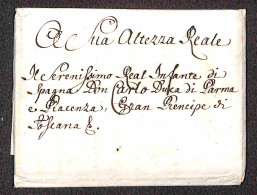 A Sua Altezza Reale
Il Serenissimo Real Infante di
Spagna Don Carlo Duca di Parma
e Piacenza, Gran Prencipe di
Toscana &.